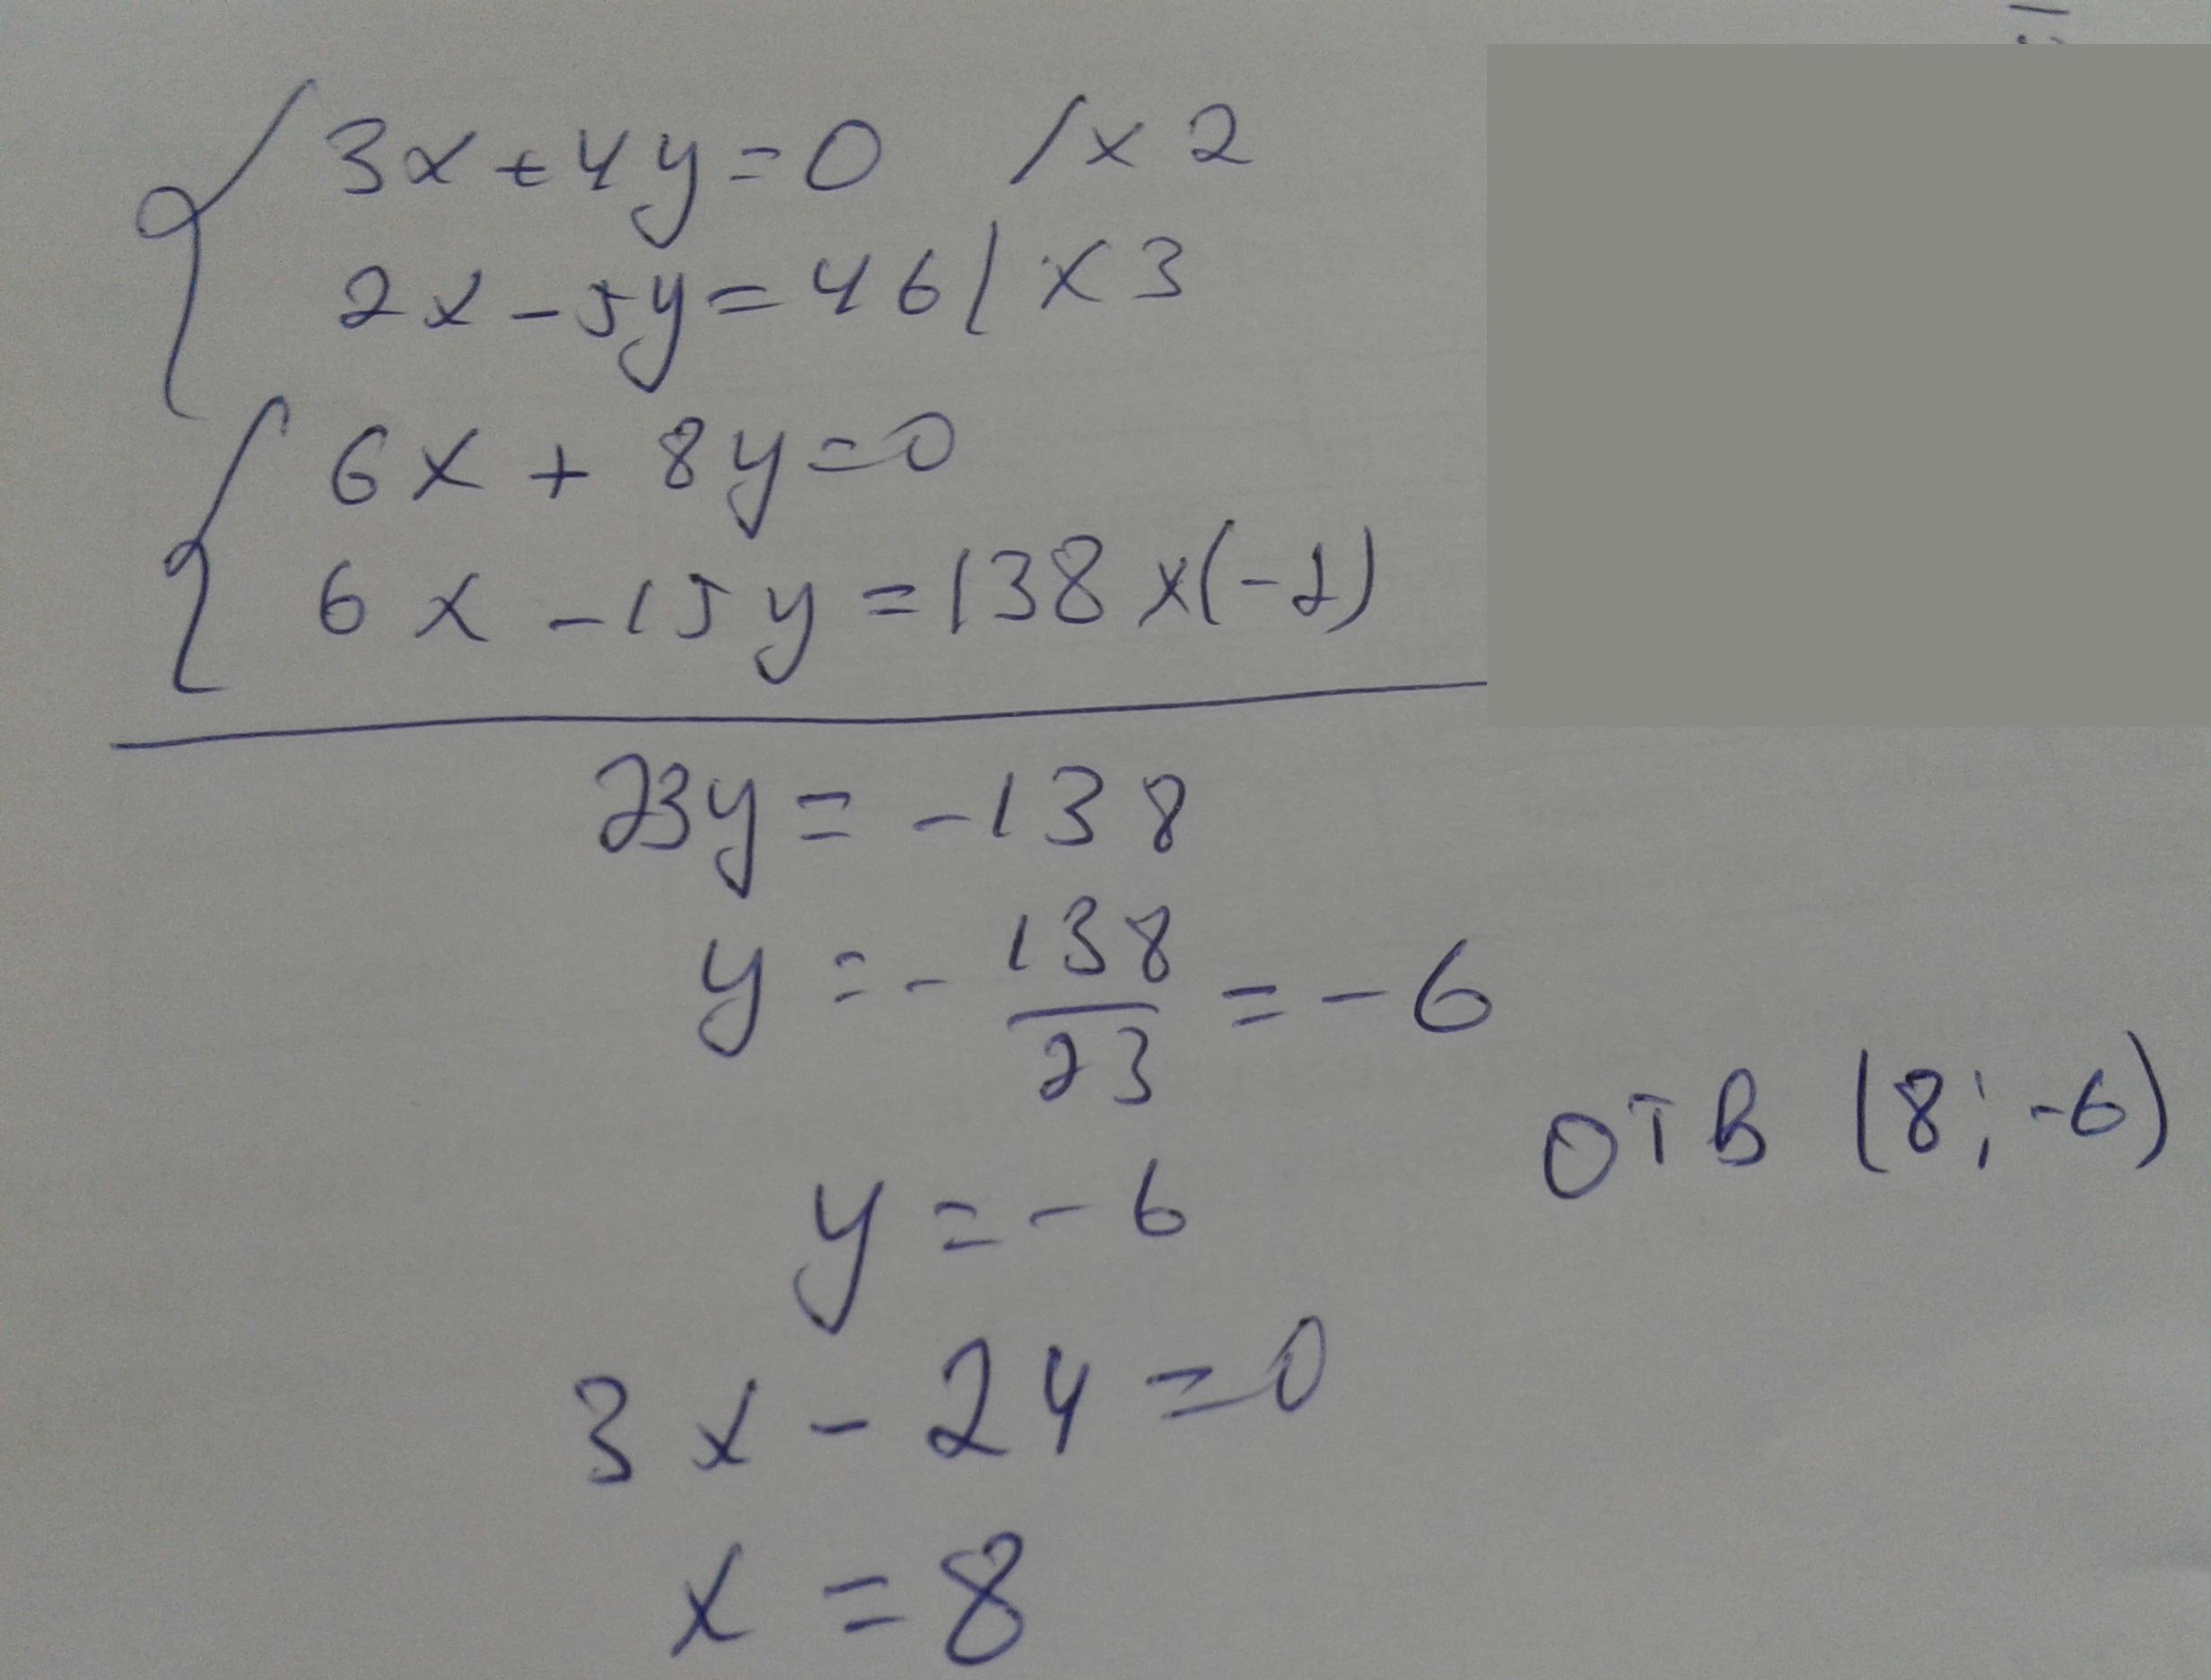 3x+4y=0 /×2
2x-5y=46/×3
6x+8y=0
6x-15y=138×(-1)
23y=-138
y=-138/23=-6
ОТВ (8;-6)
y=-6
3x-24=0
x=8